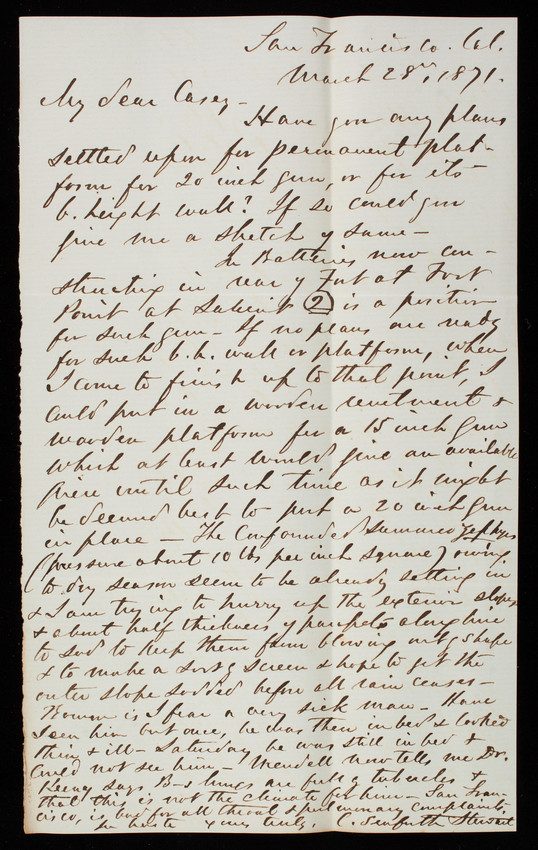 San Francisco. Cal.
March 28th, 1871.
My dear Casey -
Have you any plans
settled upon for permanent plat-
form for 20 inch gun, or for its
b. height wall? If so could you
give me a sketch of same -
In Batteries now con-
structing in rear of Fort at Fort
Point at Salient 2 is a position
for such gun - If no plans are ready
for such b. h. wall or platform, when
I come to finish up to that point, I
could put in a wooden revetment &
wooden platform for a 15 inch gun
which at least would give an available
piece until such time as it might
be deemed best to put a 20 inch gun
in place - The Confounded summer Zephyrs
(pressure about 10 lbs per inch square) owing
to dry season seem to be already setting in
& I am trying to hurry up the exterior slopes
& about half thickness of parapets along line
to sod to keep them from blowing out of shape
& to make a sort of screen & hope to get the
outer slope sodded before all rain ceases -
is I fear a very sick man - Have
seen him but once, he was then in bed & looked
thin & ill - Saturday he was still in bed &
could not see him - Mendell now tells me Dr.
Keeney says B-s lungs are full of tubercles &
that this is not the climate for him - San Fran-
cisco, is bad for all throat & pulmonary complaints.
In haste yours truly, C. Seaforth Stewart